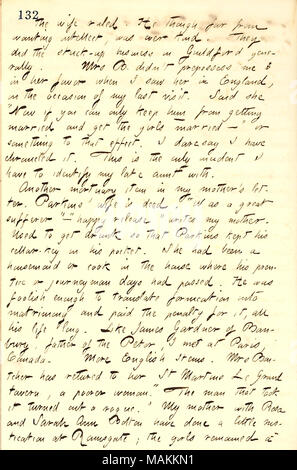 132
the wife ruled. He though far from
wanting intellect was over kind. They
did the stuck-up business in Guildford gene-
rally. Mrs B. didn't prepossess me
in her favor when I saw her in England,
on the occasion of my last visit. Said she
"Now if you can only keep him from getting
married and get the girls married —" or
something to that effect. I daresay I have
chronicled it. This is the only incident I
have to identify my late aunt with.
Another mortuary item in my mother's let-
ter. Parkins' wife is dead, "was a great
sufferer" — "happy release" writes my mother.
Used to get drunk so that Parkins kept his
cellar-key in his pocket. She had been a
housemaid or cook in the house where his pren-
tice or journeyman days had passed. He was
foolish enough to translate fornication into
matrimony and paid the penalty for it, all
his life long. Like James Gardner of Ban-
bury, father of the Peter I met at Paris,
Canada. More English items. Mrs But-
cher has returned to her St Martins Le Grand
tavern, a poorer woman. "The man that took
it turned out a rogue." My mother with Rosa
and Sarah Ann Bolton have done a little rus-
tication at Ramsgate; the girls remained a
alamy
MAKKN1